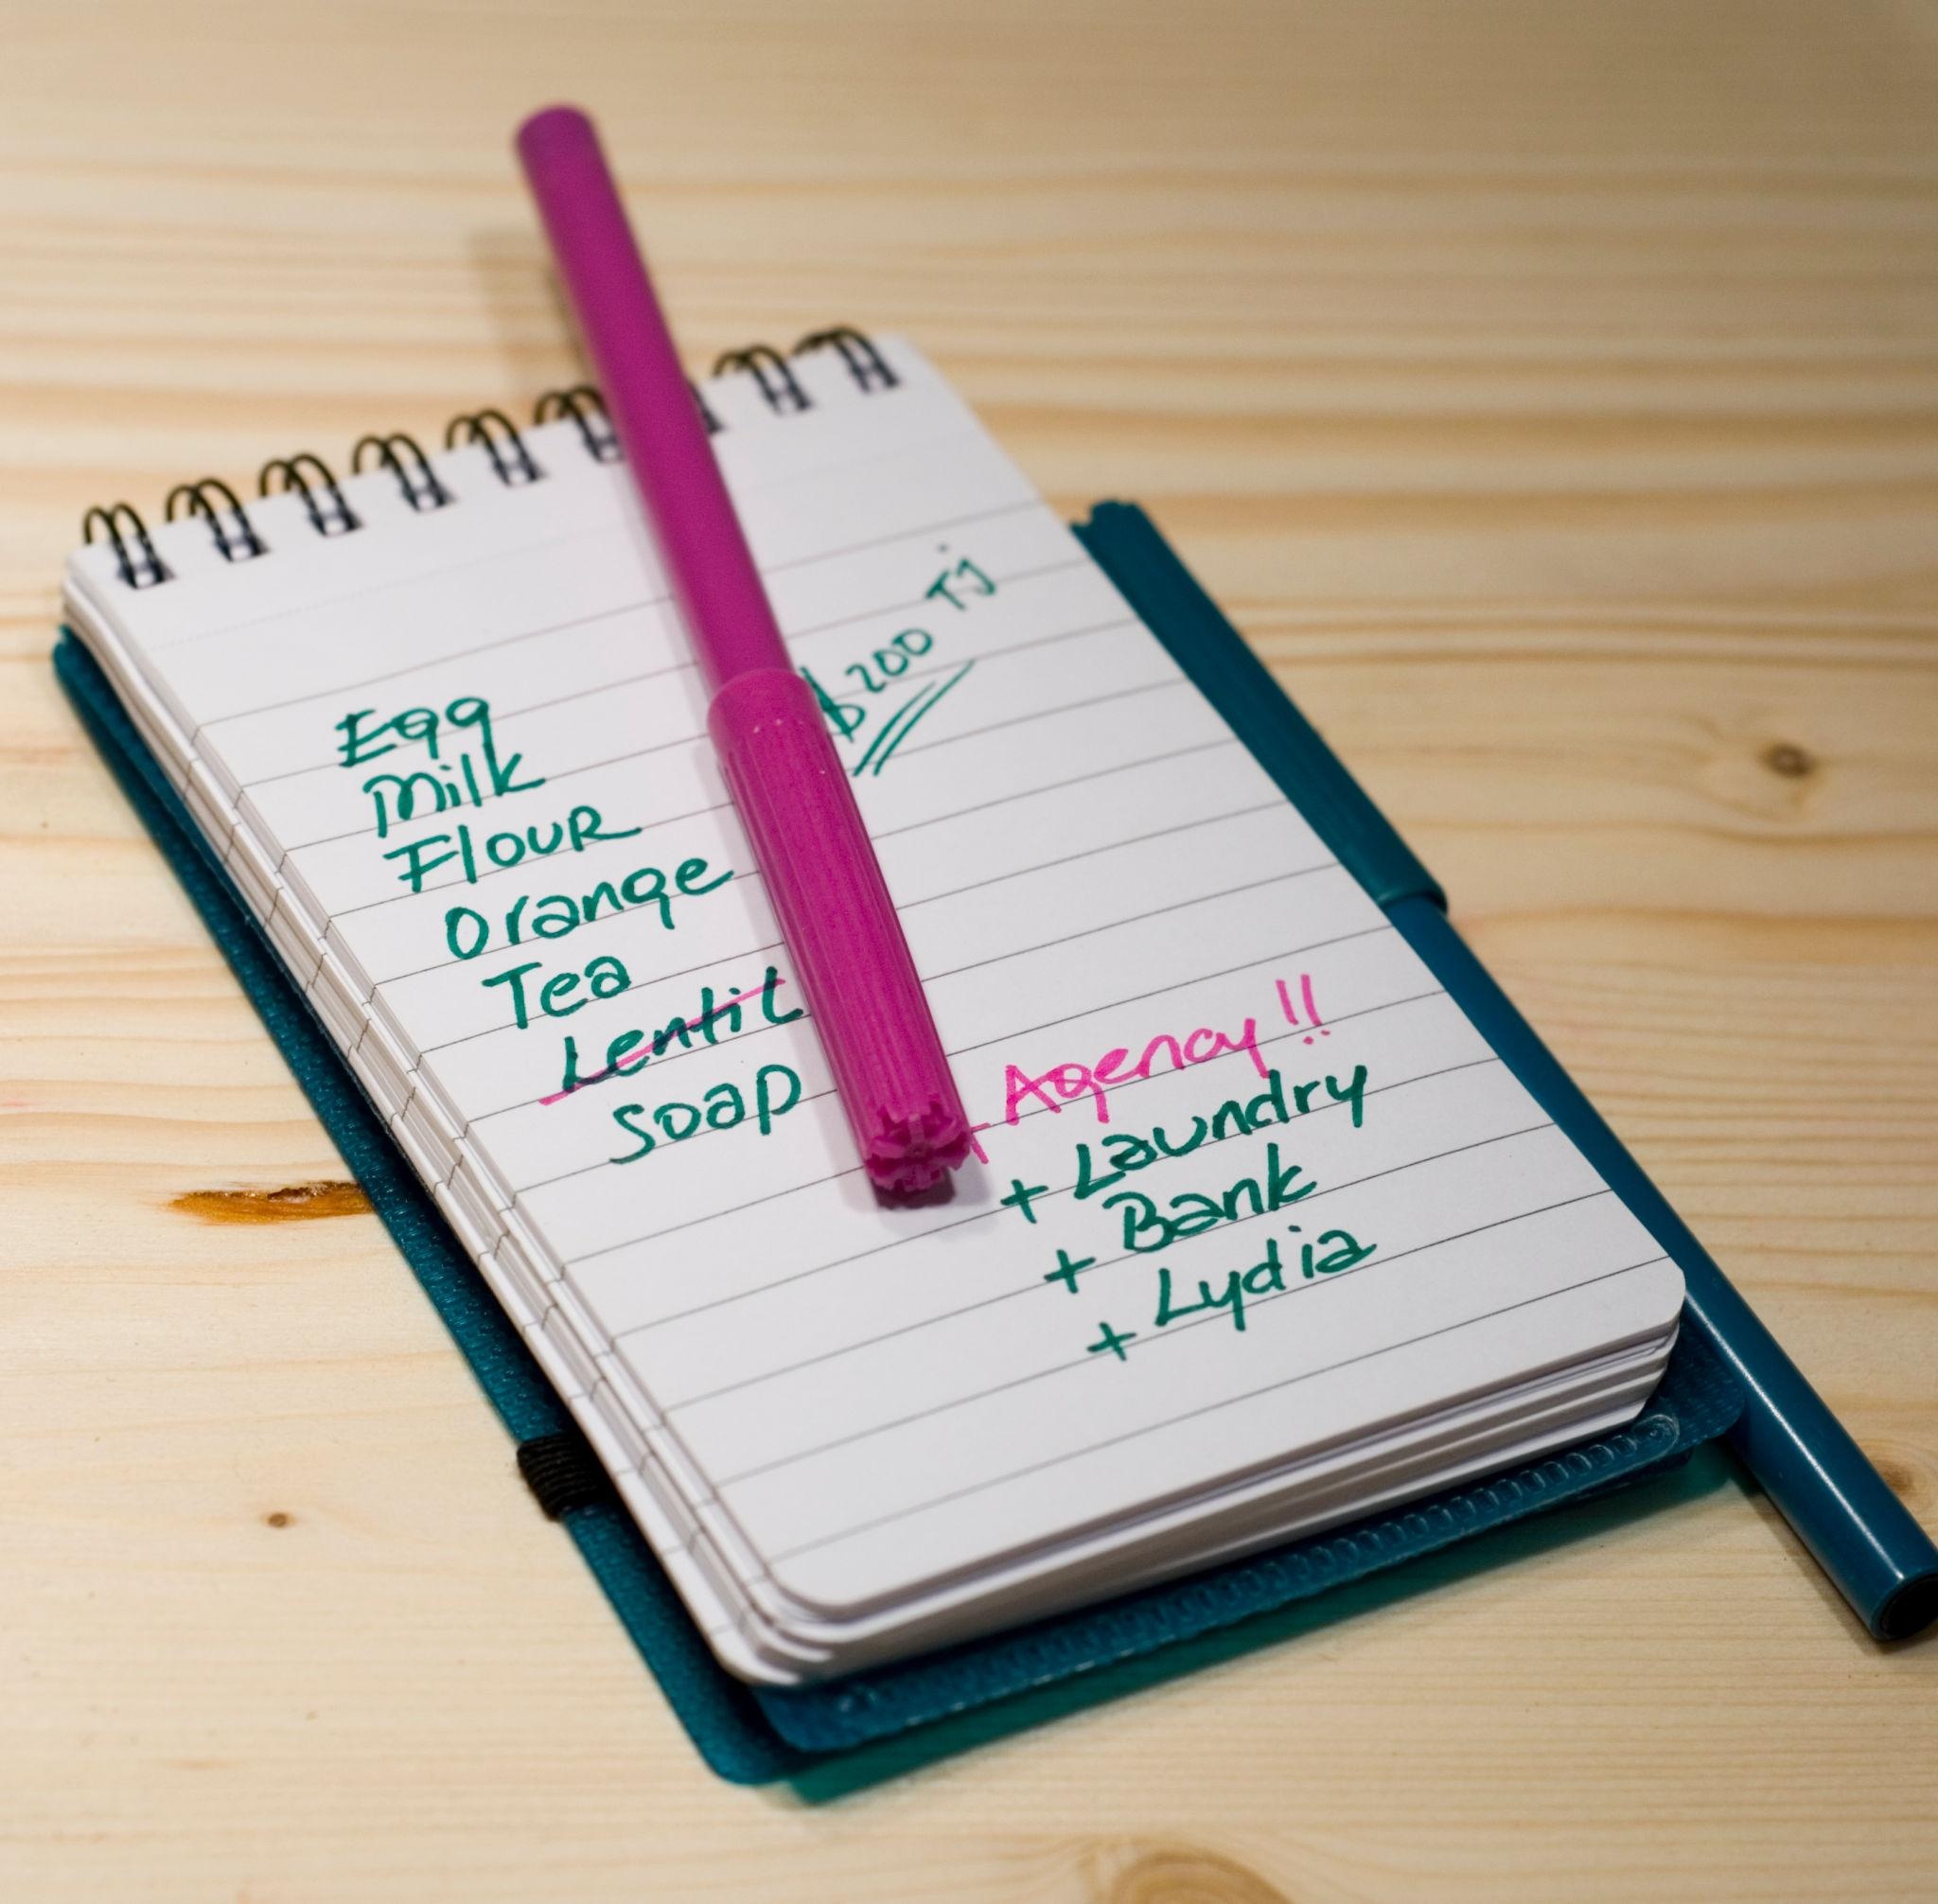 $200 Tj
Egg
Milk
Flour
Orange
Tea
Lentil
Soap
+ Agency!!
+ Laundry
+ Bank
+ Lydia